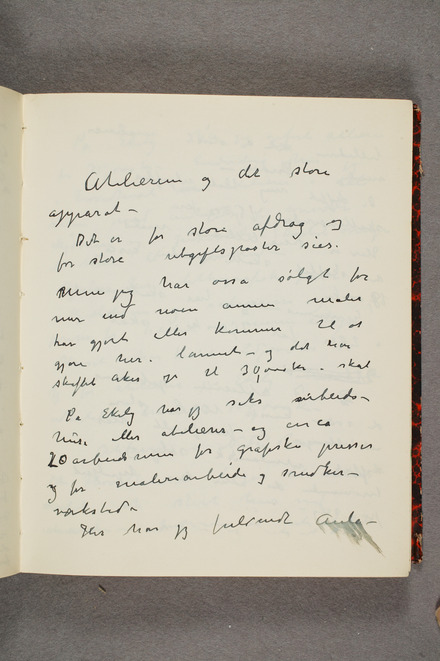 Atelierene og det store
apparat –
Det er for store afdrag og
for store utgiftsposter sies.
Men jeg har osså solgt for
mer end noen annen maler
har gjort eller kommer til at
gjøre her i landet – og det har
skaffet økes op til 30,000 kr. skat
På Ekely har jeg seks arbeids–
huse eller atelierer – og circa
20 arbeidsrum for grafiske presser
og for malerarbeide og snedker–
verksteder
Her har jeg fuldendt Aula–